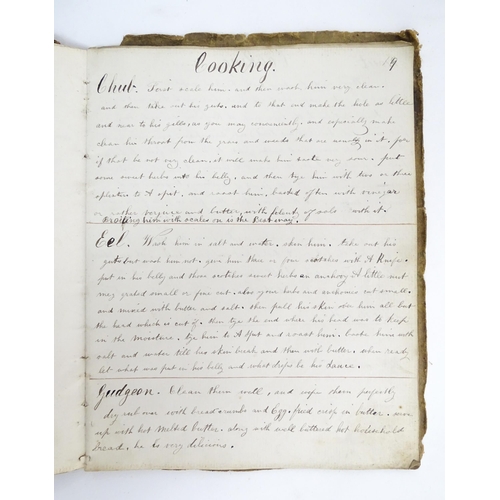 Cooking.
19
Chub. First scale him, and then wash him very clean,
and then take out his guts, and to that end make the hole as little
and near to his gills as you may conveniently, and especially make
clean his throat from the grass and weeds that are usually in it, for
if that be not very clean, it will make him taste very sour. put
some sweet herbs into his belly, and then tye him with two or three
splinters to A spit, and roast him, basted often with vinegar
or rather verjuice and butter, with plenty of salt with it.
Broiling him with scales on is the Best way.
Eel. Wash him in salt and water, skin him, take out his
guts but wash him not. give him three or four scotches with A Knife.
put in his belly and those scotches sweet herbs an anchovy A little nut
meg grated small or fine cut. also your herbs and anchovies cut small.
and mixed with butter and salt. then pull his skin over him all but
the head which is cut of. then tye the end where his head was to keep
in the moisture. tye him to A Spit and roast him. baste him with
salt and water till his skin break and then with butter. when ready
let what was put in his belly and what drips be his Sauce.
Gudgeon. Clean them well, and wipe them perfectly
dry rub over with bread crumbs and Egg. fried crisp in butter. serve
up with hot melted butter. along with well buttered hot household
Bread. he is very delicious.